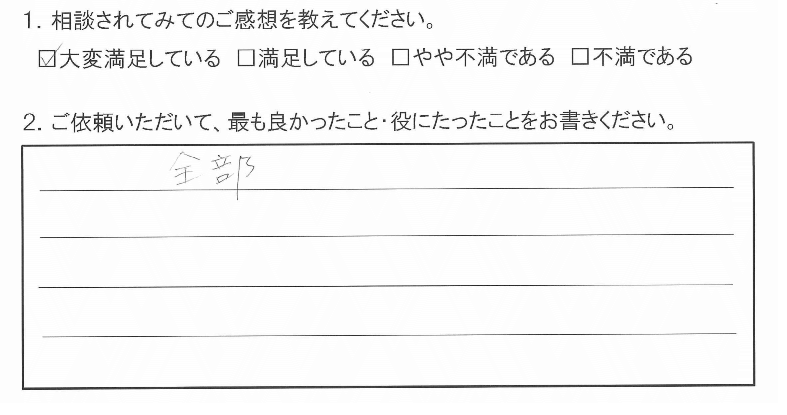 1. 相談されてみてのご感想を教えてください。
☑大変満足している □満足している □やや不満である □不満である
2. ご依頼いただいて、最も良かったこと・役にたったことをお書きください。
全部